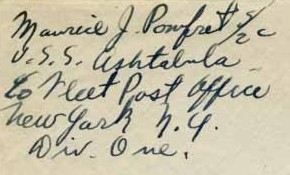 Maurice J. Pomfret S/2c
U.S.S. Ashtabula
c/o Fleet Post Office
New York N.Y.
Div. One.